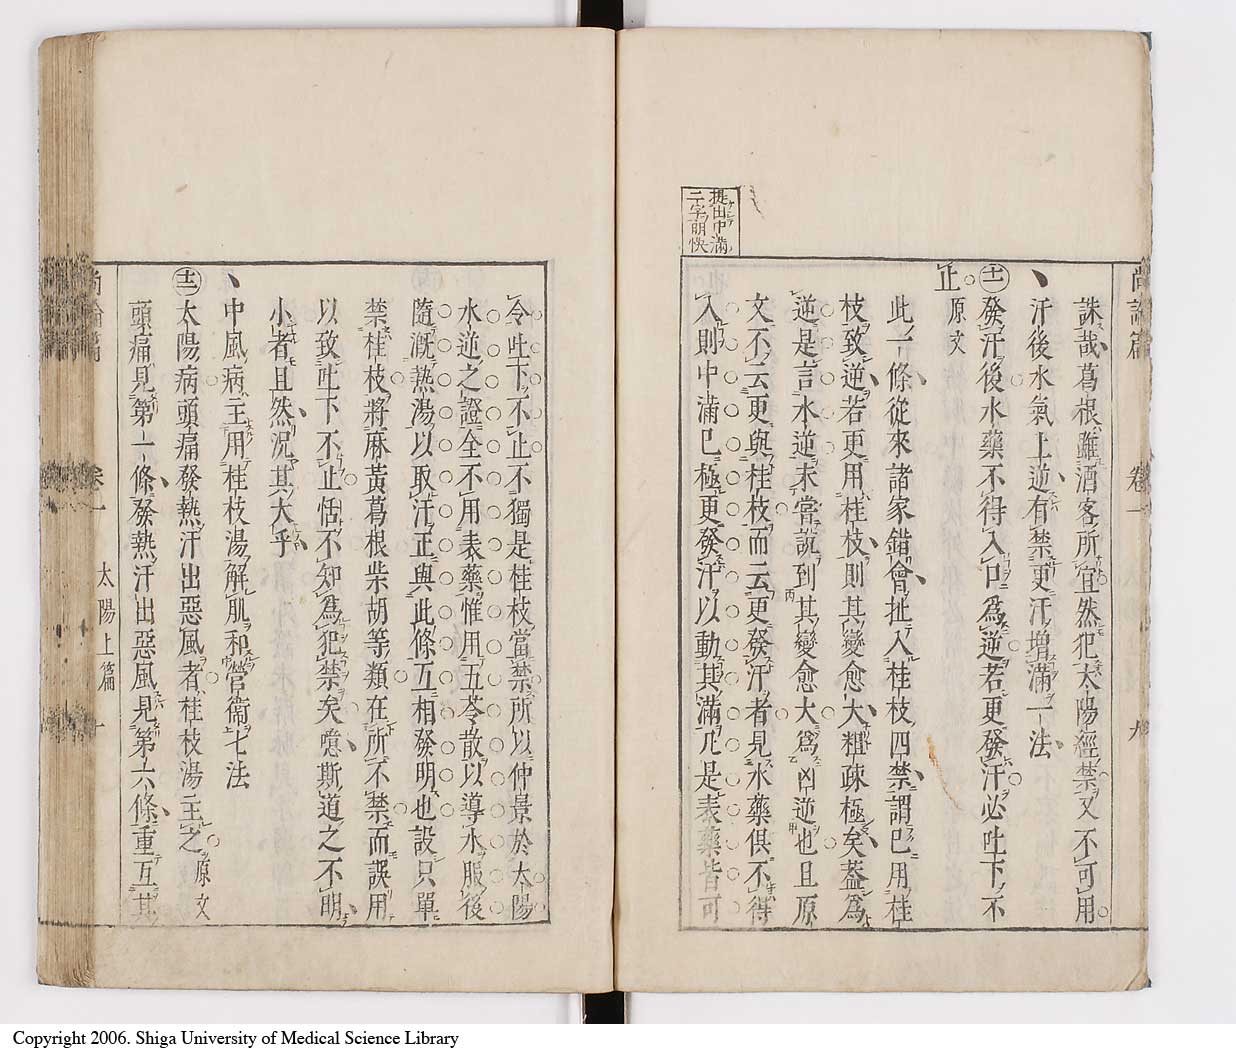 尚論篇 卷一 九
提出中滿
二字明快
誅哉葛根雖酒客所宜然犯太陽經禁又不可用
汗後水氣上逆有禁更汗增滿一法
十一 發汗後水藥不得入口爲逆若更發汗必吐下不
止 原文
此一條從來諸家錯會扯入桂枝四禁謂已用桂
枝致逆若更用桂枝則其變愈大粗疎極矣葢爲
逆是言水逆未嘗說到其變愈大爲凶逆也且原
文不云更與桂枝而云更發汗者見水藥俱不得
入則中滿已極更發汗以動其滿凡是表藥皆可
令吐下不止不獨是桂枝當禁所以仲景於太陽
水逆之證全不用表藥惟用五苓散以導水服後
隨漑熱湯以取汗正與此條互相發明也設只單
禁桂枝將麻黃葛根柴胡等類在所不禁而誤用
以致吐下不止恬不知爲犯禁矣噫斯道之不明
小者且然況其大乎
中風病主用桂枝湯解肌和營衞七法
十二 太陽病頭痛發熱汗出惡風者桂枝湯主之 原文
頭痛見第一條發熱汗出惡風見第六條重互其
尚論篇 卷一 太陽上篇 十
Copyright 2006. Shiga University of Medical Science Library